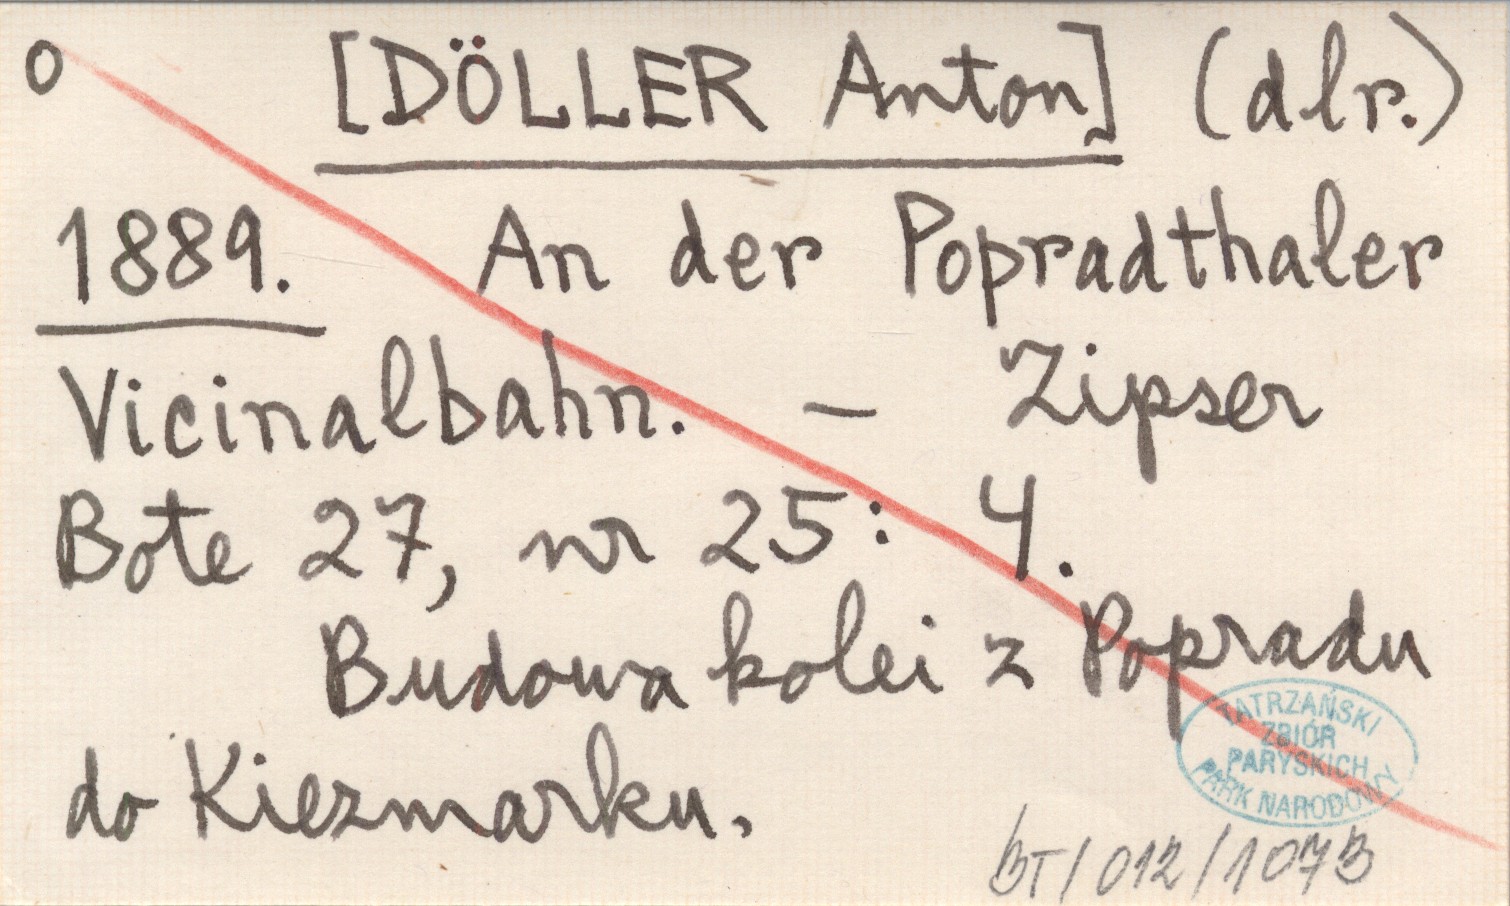 o [DÖLLER Anton] (dlr.)
1889. An der Popradthaler
Vicinalbahn. – Zipser
Bote 27, nr 25: 4.
Budowa kolei z Popradu
do Kiezmarku.
TATRZAŃSKI
ZBIÓR
PARYSKICH
PARK NARODOWY
BT/012/1073